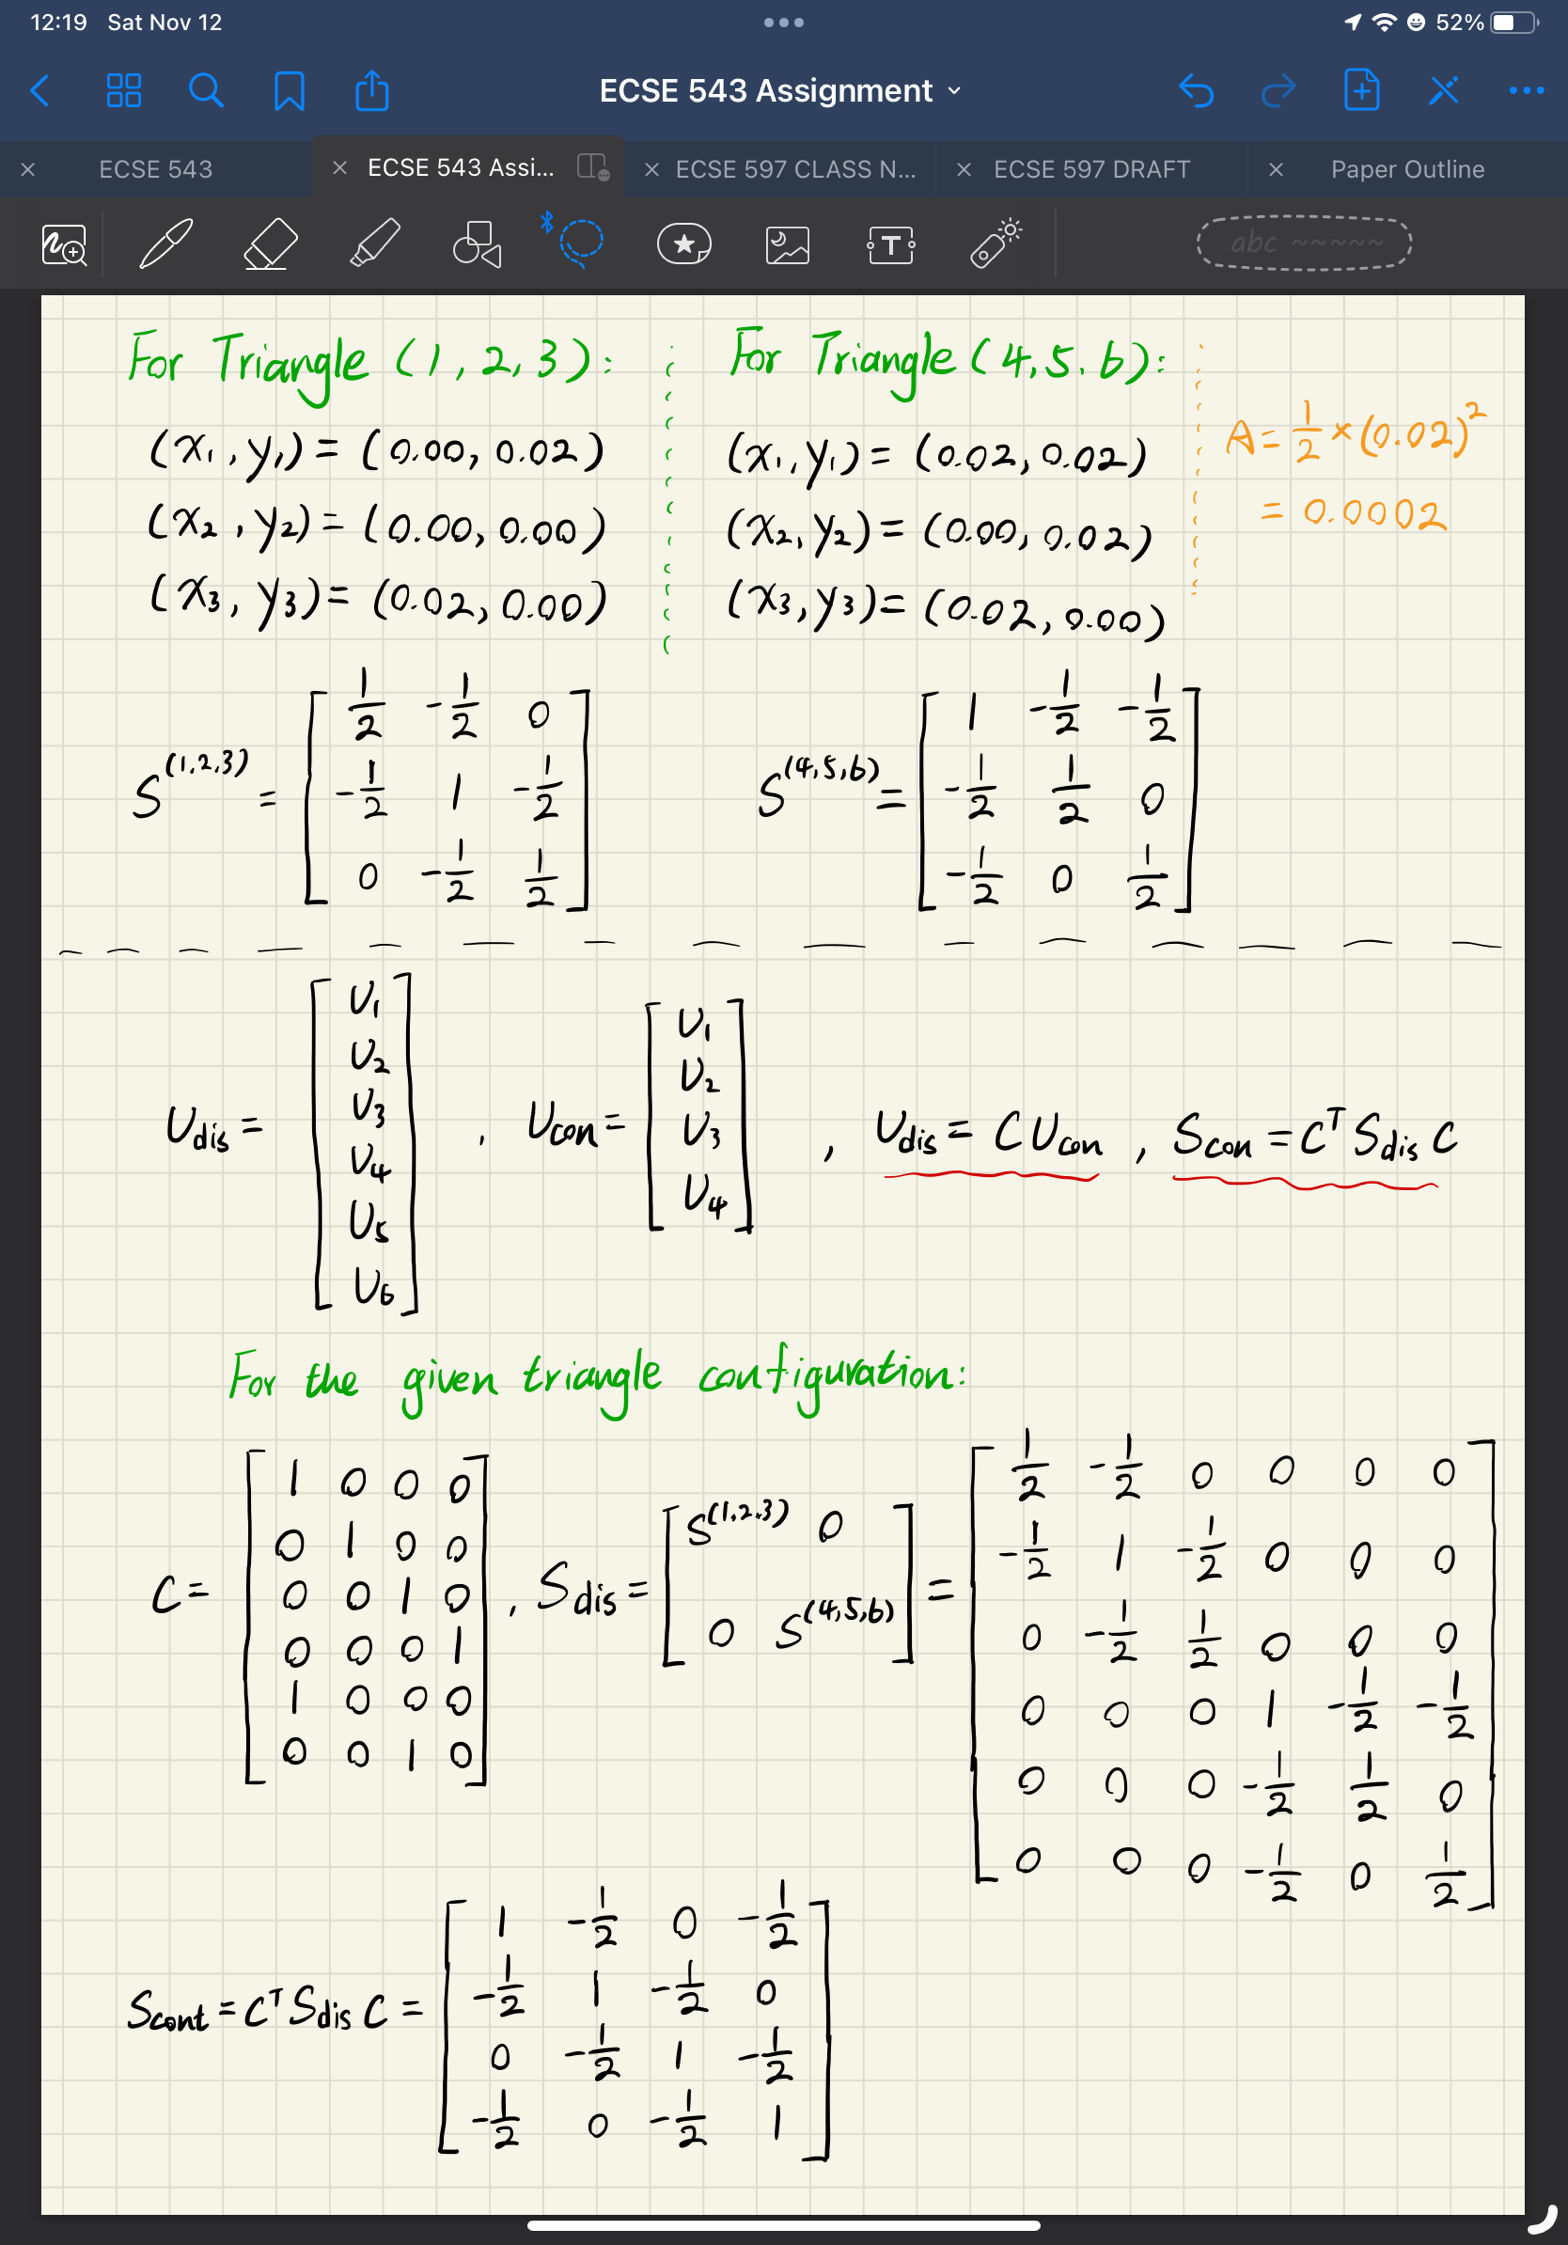 12:19 Sat Nov 12 52%
ECSE 543 Assignment
ECSE 543 ECSE 543 Assi... ECSE 597 CLASS N... ECSE 597 DRAFT Paper Outline
abc
For Triangle (1,2,3): For Triangle (4,5,6):
(x₁,y₁) = (0.00, 0.02) (x₁,y₁) = (0.02, 0.02) A = 1/2 × (0.02)²
(x₂,y₂) = (0.00, 0.00) (x₂,y₂) = (0.00, 0.02) = 0.0002
(x₃,y₃) = (0.02, 0.00) (x₃,y₃) = (0.02, 0.00)
1/2 -1/2 0 1 -1/2 -1/2
S^(1,2,3) = -1/2 1 -1/2 S^(4,5,6) = -1/2 1/2 0
0 -1/2 1/2 -1/2 0 1/2
U_dis = [U₁ U₂ U₃ U₄ U₅ U₆], U_con = [U₁ U₂ U₃ U₄], U_dis = C U_con, S_con = Cᵀ S_dis C
For the given triangle configuration:
C =
1 0 0 0
0 1 0 0
0 0 1 0
0 0 0 1
1 0 0 0
0 0 1 0
, S_dis =
S^(1,2,3) 0
0 S^(4,5,6)
=
1/2 -1/2 0 0 0 0
-1/2 1 -1/2 0 0 0
0 -1/2 1/2 0 0 0
0 0 0 1 -1/2 -1/2
0 0 0 -1/2 1/2 0
0 0 0 -1/2 0 1/2
S_cont = Cᵀ S_dis C =
1 -1/2 0 -1/2
-1/2 1 -1/2 0
0 -1/2 1 -1/2
-1/2 0 -1/2 1